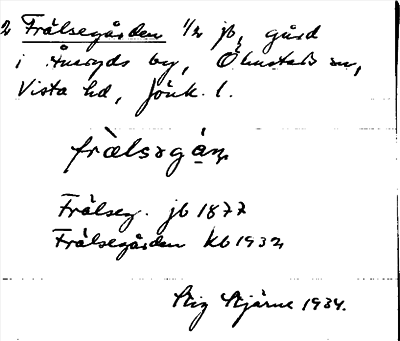 2 Frälsegården 1/2 jb, gård
i Åseryds by, Ölmstads sn,
Vista hd, Jönk. l.
frälsəgån
Frälseg. jb 1877
Frälsegården kb 1932
Stig Stjärne 1934.